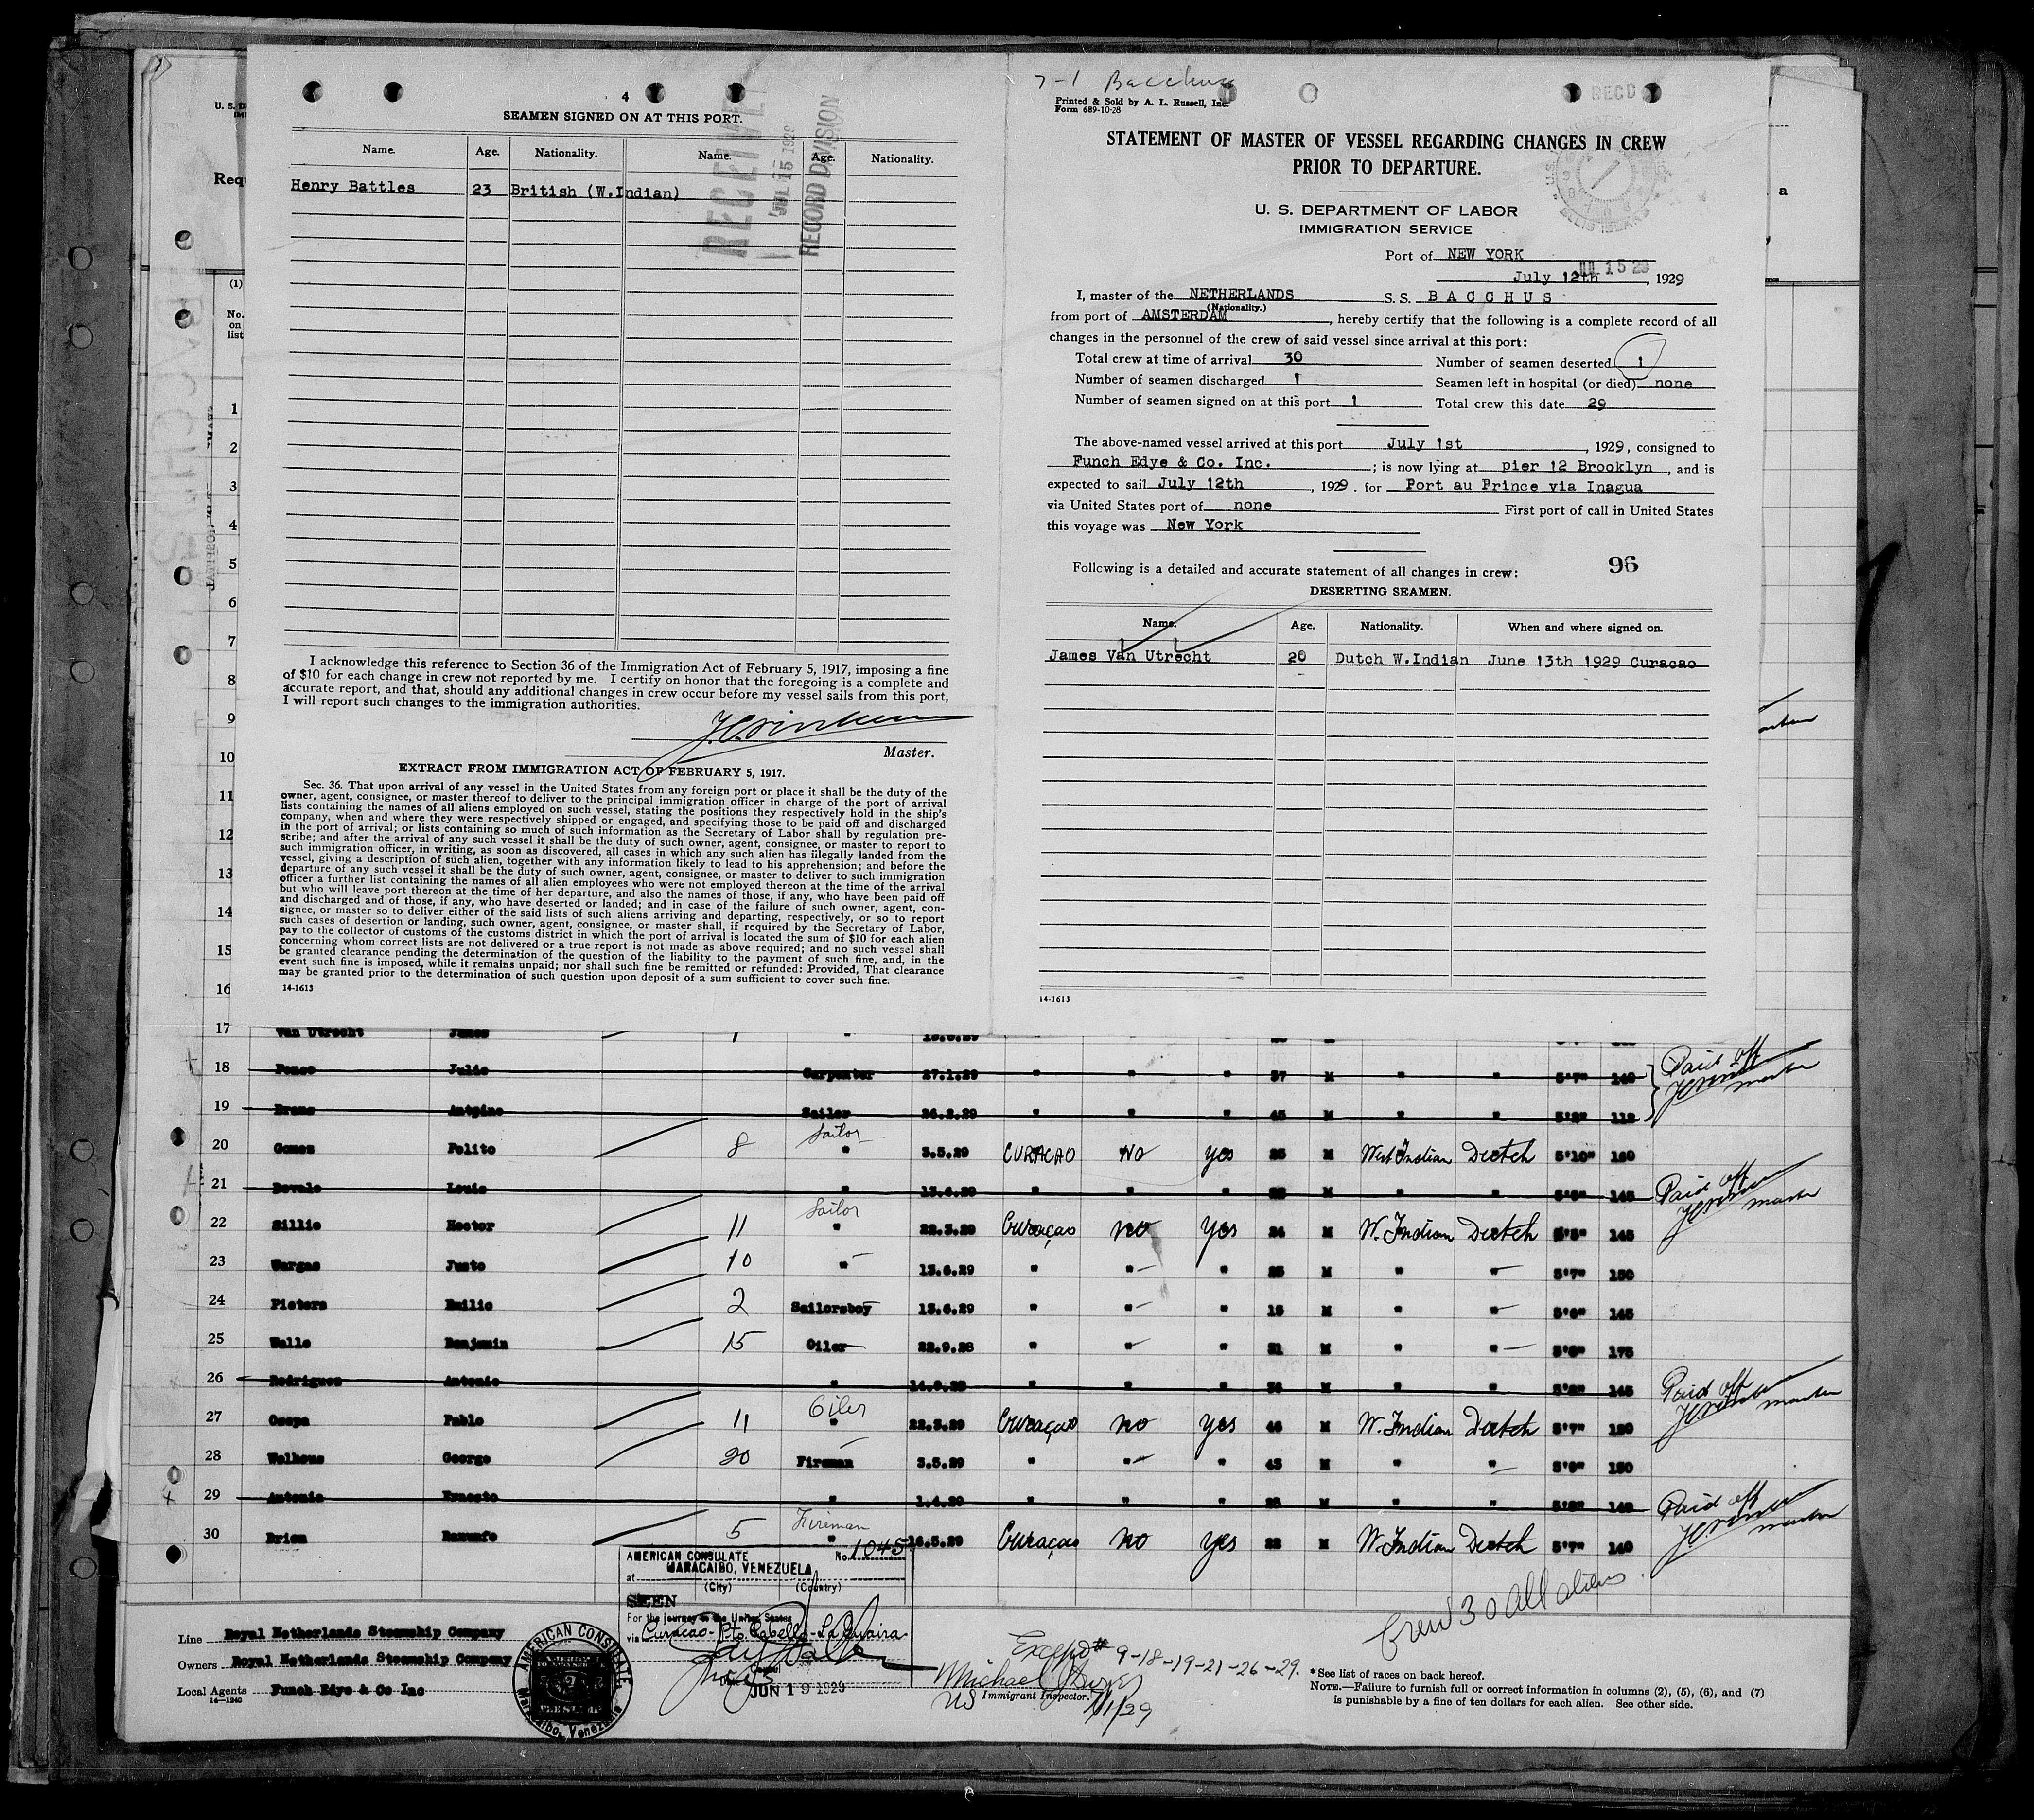 4
SEAMEN SIGNED ON AT THIS PORT.
Name. Age. Nationality. Name. Age. Nationality.
Henry Battles 23 British (W.Indian)
RECEIVED
JUL 15 1929
RECORD DIVISION
I acknowledge this reference to Section 36 of the Immigration Act of February 5, 1917, imposing a fine
of $10 for each change in crew not reported by me. I certify on honor that the foregoing is a complete and
accurate report, and that, should any additional changes in crew occur before my vessel sails from this port,
I will report such changes to the immigration authorities.
Master.
EXTRACT FROM IMMIGRATION ACT OF FEBRUARY 5, 1917.
Sec. 36. That upon arrival of any vessel in the United States from any foreign port or place it shall be the duty of the
owner, agent, consignee, or master thereof to deliver to the principal immigration officer in charge of the port of arrival
lists containing the names of all aliens employed on such vessel, stating the positions they respectively hold in the ship's
company, when and where they were respectively shipped or engaged, and specifying those to be paid off and discharged
in the port of arrival; or lists containing so much of such information as the Secretary of Labor shall by regulation pre-
scribe; and after the arrival of any such vessel it shall be the duty of such owner, agent, consignee, or master to report to
such immigration officer, in writing, as soon as discovered, all cases in which any such alien has illegally landed from the
vessel, giving a description of such alien, together with any information likely to lead to his apprehension; and before the
departure of any such vessel it shall be the duty of such owner, agent, consignee, or master to deliver to such immigration
officer a further list containing the names of all alien employees who were not employed thereon at the time of the arrival
but who will leave port thereon at the time of her departure, and also the names of those, if any, who have been paid off
and discharged and of those, if any, who have deserted or landed; and in case of the failure of such owner, agent, con-
signee, or master so to deliver either of the said lists of such aliens arriving and departing, respectively, or so to report
such cases of desertion or landing, such owner, agent, consignee, or master shall, if required by the Secretary of Labor,
pay to the collector of customs of the customs district in which the port of arrival is located the sum of $10 for each alien
concerning whom correct lists are not delivered or a true report is not made as above required; and no such vessel shall
be granted clearance pending the determination of the question of the liability to the payment of such fine, and, in the
event such fine is imposed, while it remains unpaid; nor shall such fine be remitted or refunded: Provided, That clearance
may be granted prior to the determination of such question upon deposit of a sum sufficient to cover such fine.
14-1613
7-1 Bacchus
Printed & Sold by A. L. Russell, Inc.
Form 689-10-28
RECD
STATEMENT OF MASTER OF VESSEL REGARDING CHANGES IN CREW
PRIOR TO DEPARTURE.
U. S. DEPARTMENT OF LABOR
IMMIGRATION SERVICE
ELLIS ISLAND
Port of NEW YORK
JUL 15 29
July 12th, 1929
I, master of the NETHERLANDS S.S. BACCHUS
(Nationality.)
from port of AMSTERDAM, hereby certify that the following is a complete record of all
changes in the personnel of the crew of said vessel since arrival at this port:
Total crew at time of arrival 30 Number of seamen deserted 1
Number of seamen discharged 1 Seamen left in hospital (or died) none
Number of seamen signed on at this port 1 Total crew this date 29
The above-named vessel arrived at this port July 1st, 1929, consigned to
Funch Edye & Co. Inc.; is now lying at pier 12 Brooklyn, and is
expected to sail July 12th, 1929. for Port au Prince via Inagua
via United States port of none First port of call in United States
this voyage was New York
96
Following is a detailed and accurate statement of all changes in crew:
DESERTING SEAMEN.
Name. Age. Nationality. When and where signed on.
James Van Utrecht 20 Dutch W.Indian June 13th 1929 Curacao
14-1613
(1)
No.
on
list
1
2
3
4
5
6
7
8
9
10
11
12
13
14
15
16
17 Van Utrecht James
18 Julio Carpenter 27.1.29 " " " 37 M " " 5'7" 140 Paid off master
19 Sailor 26.2.29 " " " 45 M " " 5'2" 112
20 Gomez Polito 8 Sailor " 3.5.29 CURACAO NO yes 25 M West Indian Dutch 5'10" 160
21 Louis " 13.6.29 " " " M " " 145 Paid off master
22 Sillie Hector 11 Sailor " 22.3.29 Curaçao no yes 24 M W. Indian Dutch 5'5" 145
23 Wargas Justo 10 " 13.6.29 " " " 25 M " " 5'7" 150
24 Pieters Emilio 2 Sailorsboy 13.6.29 " " " 18 M " " 145
25 Walle Benjamin 15 Oiler 22.9.28 " " " 21 M " " 175
26 Rodriguez Antonio " " " " M " " 145 Paid off master
27 Pablo 11 Oiler " 22.3.29 Curaçao no yes 46 M W. Indian Dutch 5'7"
28 George 20 Fireman 3.5.29 " " " 43 M " " 5'9" 150
29 Antonio Ernesto " 1.4.29 " " " M " " Paid off master
30 5 Fireman " 16.5.29 Curaçao no yes 22 M W. Indian Dutch 5'7" 140
AMERICAN CONSULATE No. 1045
at MARACAIBO, VENEZUELA
(City) (Country)
SEEN
For the journey to the United States
via Curacao-Pto. Cabello-La Guaira
JUN 19 1929
AMERICAN CONSULATE
Maracaibo, Venezuela
Line Royal Netherlands Steamship Company
Owners Royal Netherlands Steamship Company
Local Agents Funch Edye & Co Inc
14-1240
Crew 30 all aliens.
Except # 9-18-19-21-26-29.
Michael
US Immigrant Inspector. 7/1/29
* See list of races on back hereof.
NOTE.—Failure to furnish full or correct information in columns (2), (5), (6), and (7)
is punishable by a fine of ten dollars for each alien. See other side.